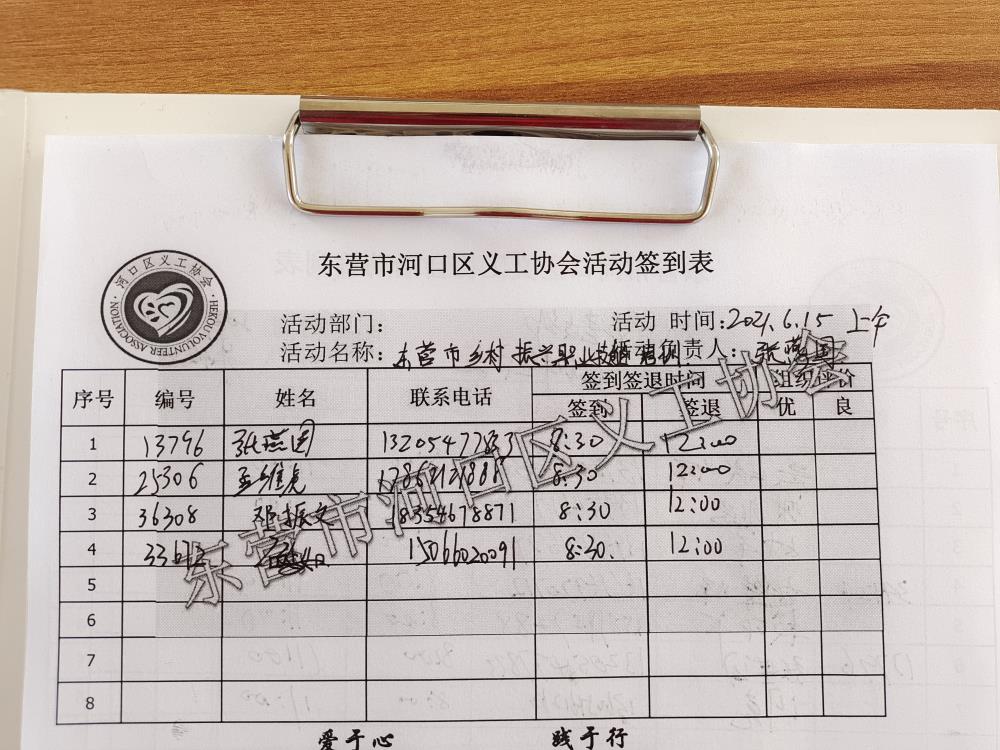 东营市河口区义工协会活动签到表
河口区义工协会
HEKOU VOLUNTEER ASSOCIATION
活动部门： 活动 时间：2021.6.15 上午
活动名称：东营市乡村振兴职业技能培训 活动负责人：张燕园
序号 编号 姓名 联系电话 签到签退时间 组织评价
签到 签退 优 良
1 13796 张燕园 13205477833 8:30 12:00
2 25306 8:30 12:00
3 36308 邓振文 18354678871 8:30 12:00
4 15066020091 8:30. 12:00
5
6
7
8
爱于心 践于行
东营市河口区义工协会